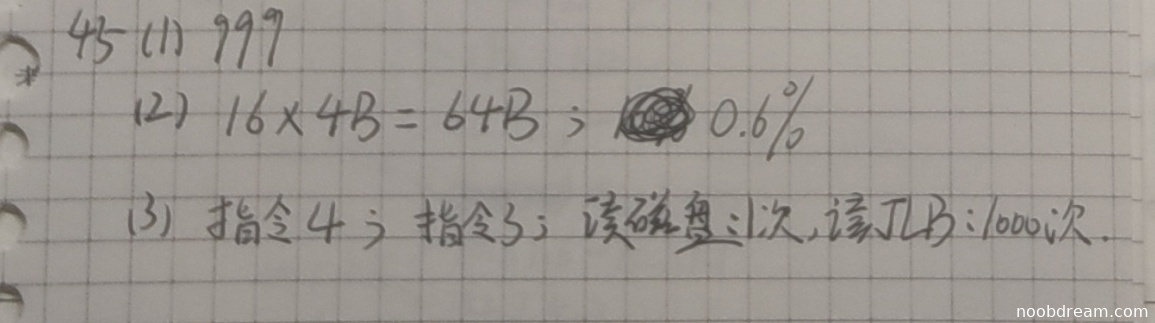 45 (1) 999
(2) 16×4B=64B; 0.6%
(3) 指令4; 指令3; 读磁盘:1次,读TLB:1000次.
noobdream.com